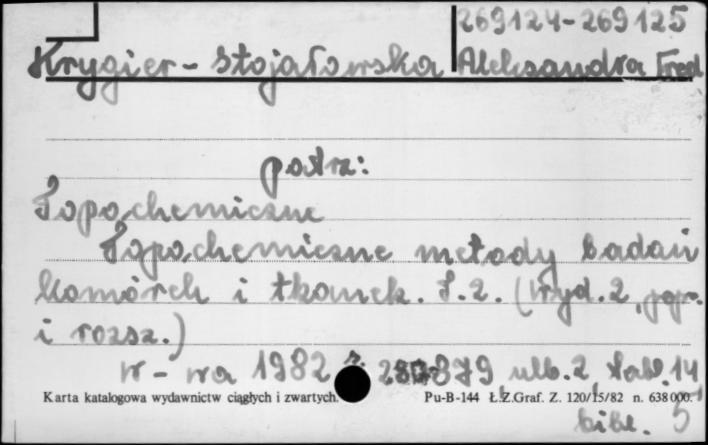 269124-269125
Krygier-Stojałowska Aleksandra Fred
patrz:
Topochemiczne
Topochemiczne metody badań
komórek i tkanek. T.2. (Wyd.2, popr.
i rozsz.)
W-wa 1982 r. 879 ulb.2 tabl.14
Karta katalogowa wydawnictw ciągłych i zwartych. Pu-B-144 Ł.Z.Graf. Z. 120/15/82 n. 638 000.
bibl. 5